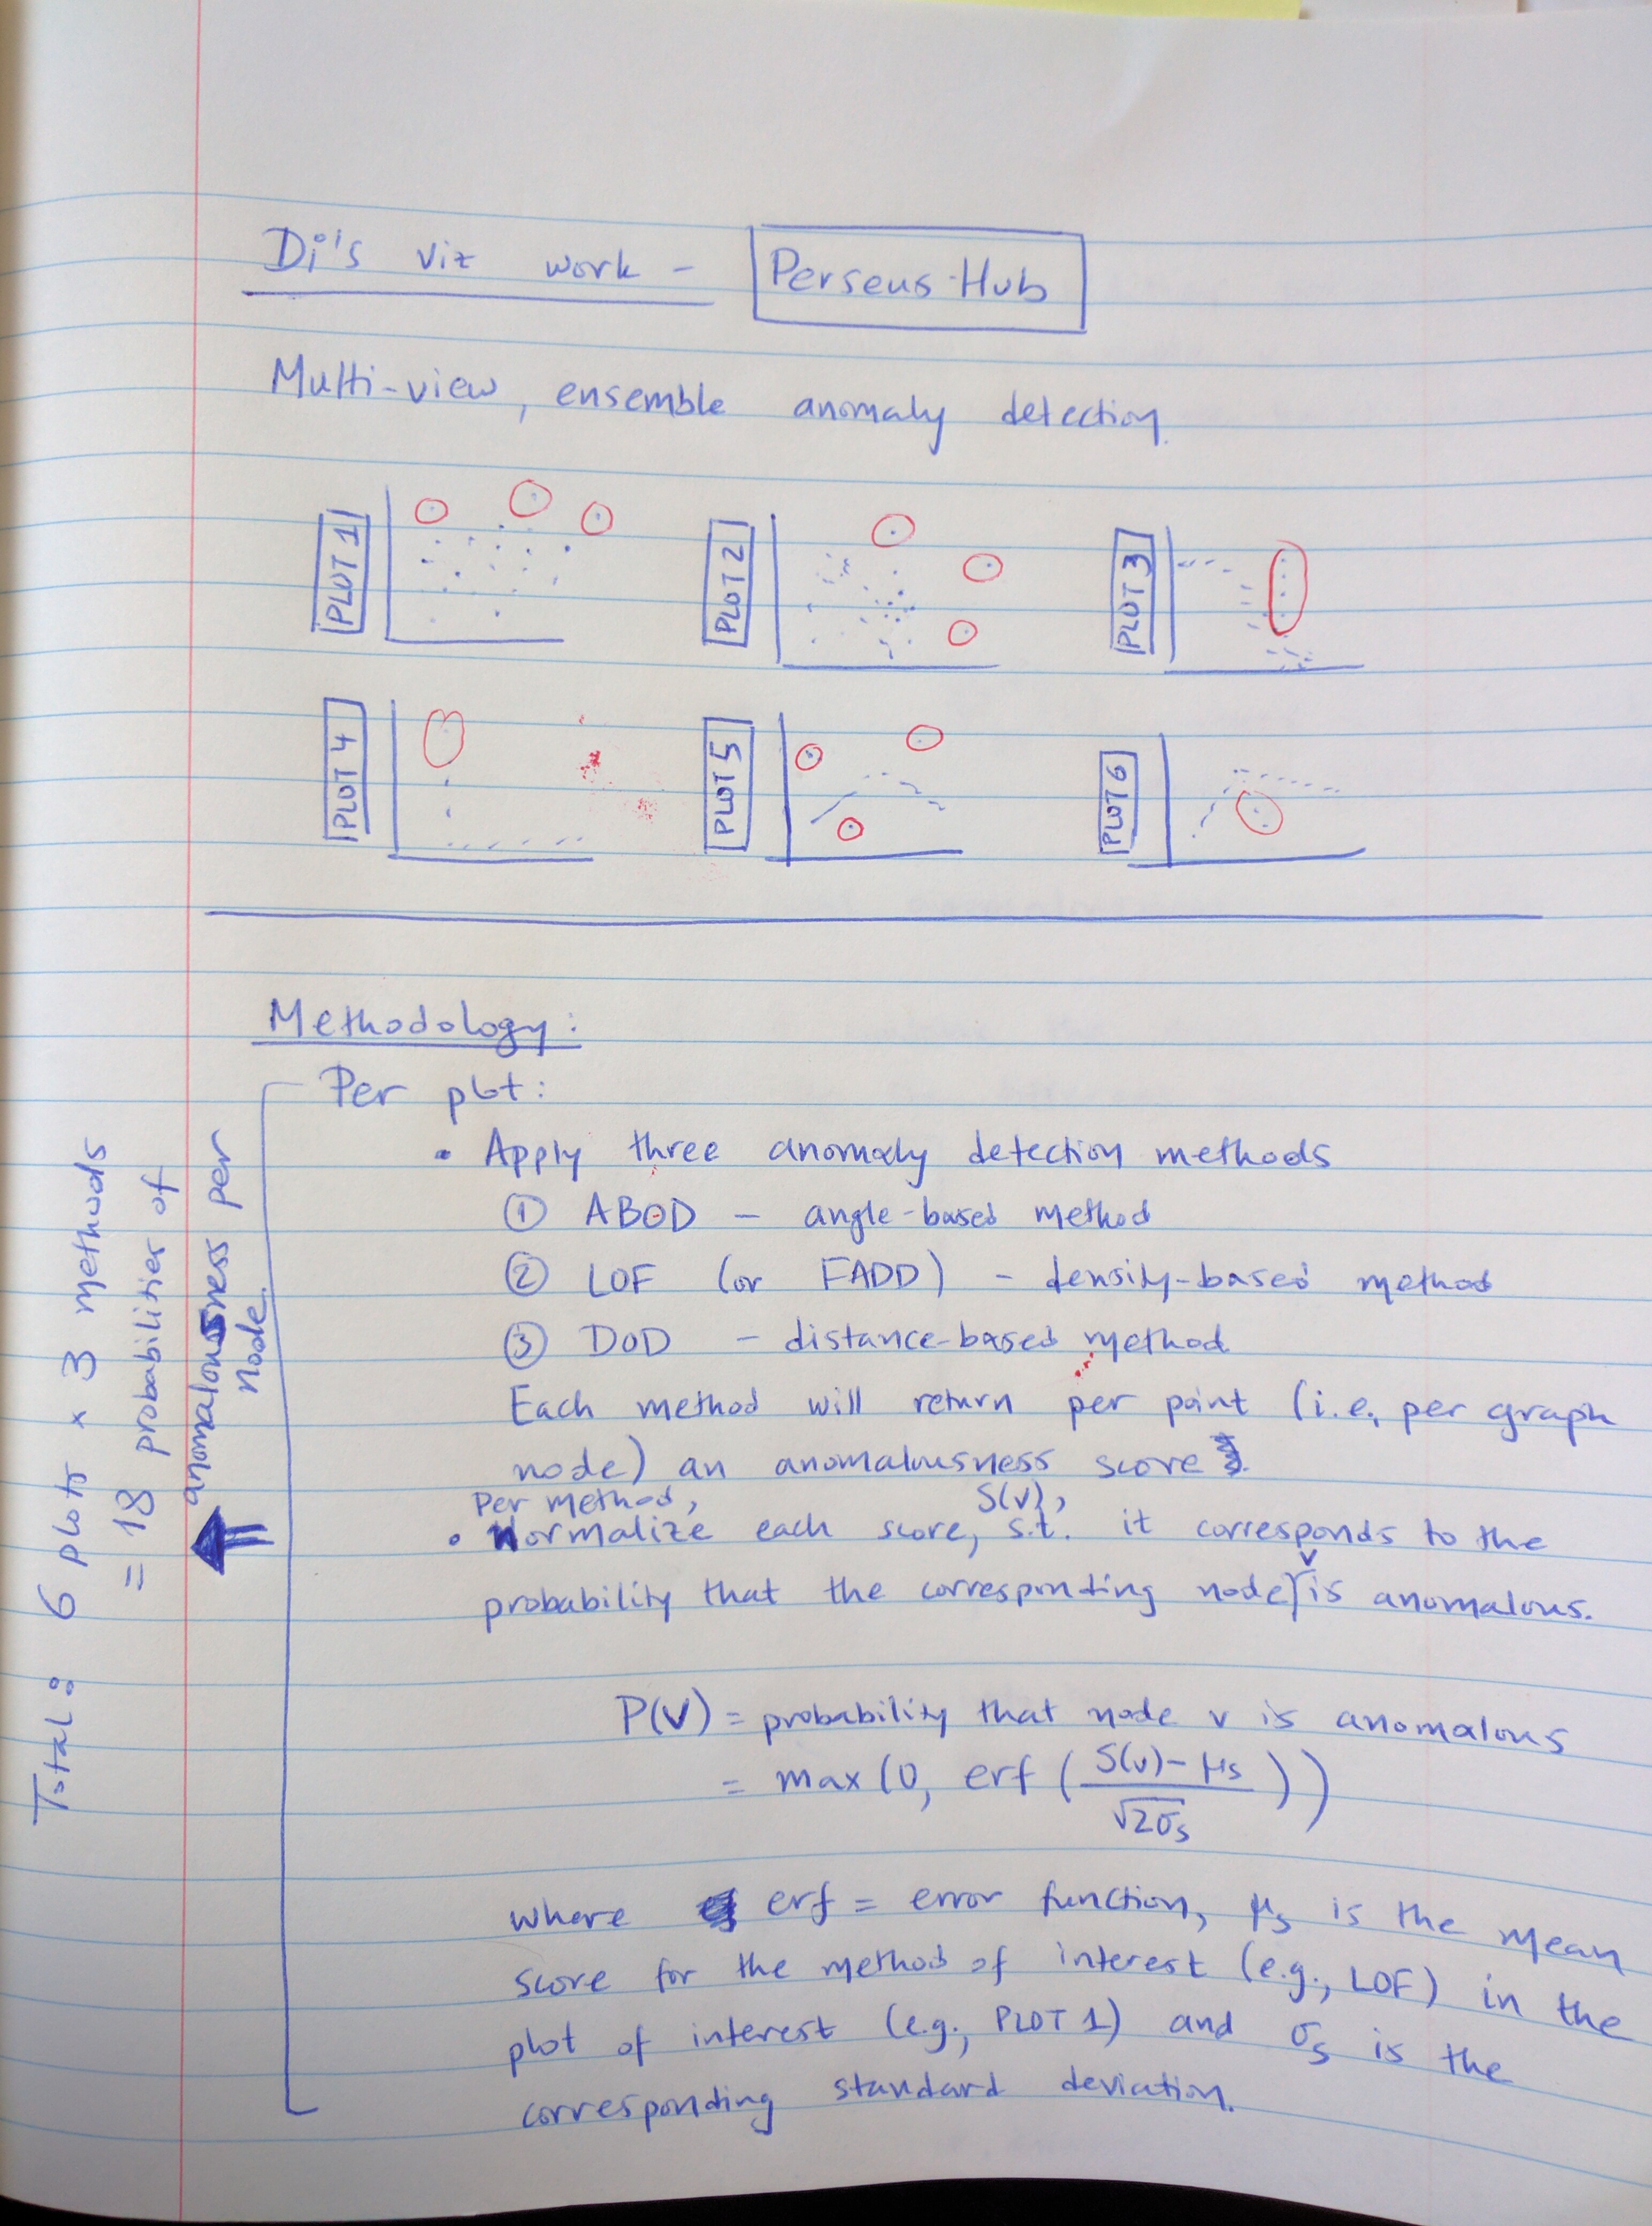 Di's viz work - Perseus-Hub
Multi-view, ensemble anomaly detection.
PLOT 1
PLOT 2
PLOT 3
PLOT 4
PLOT 5
PLOT 6
Methodology:
Per plot:
• Apply three anomaly detection methods
① ABOD - angle-based method
② LOF (or FADD) - density-based method
③ DOD - distance-based method
Each method will return per point (i.e., per graph
node) an anomalousness score.
Per method, S(v),
• Normalize each score, s.t. it corresponds to the
v
probability that the corresponding node is anomalous.
P(v) = probability that node v is anomalous
= max(0, erf(S(v)-μs / √2σs))
where erf = error function, μs is the mean
score for the method of interest (e.g., LOF) in the
plot of interest (e.g., PLOT 1) and σs is the
corresponding standard deviation.
Total: 6 plots × 3 methods
= 18 probabilities of
anomalousness per
node.